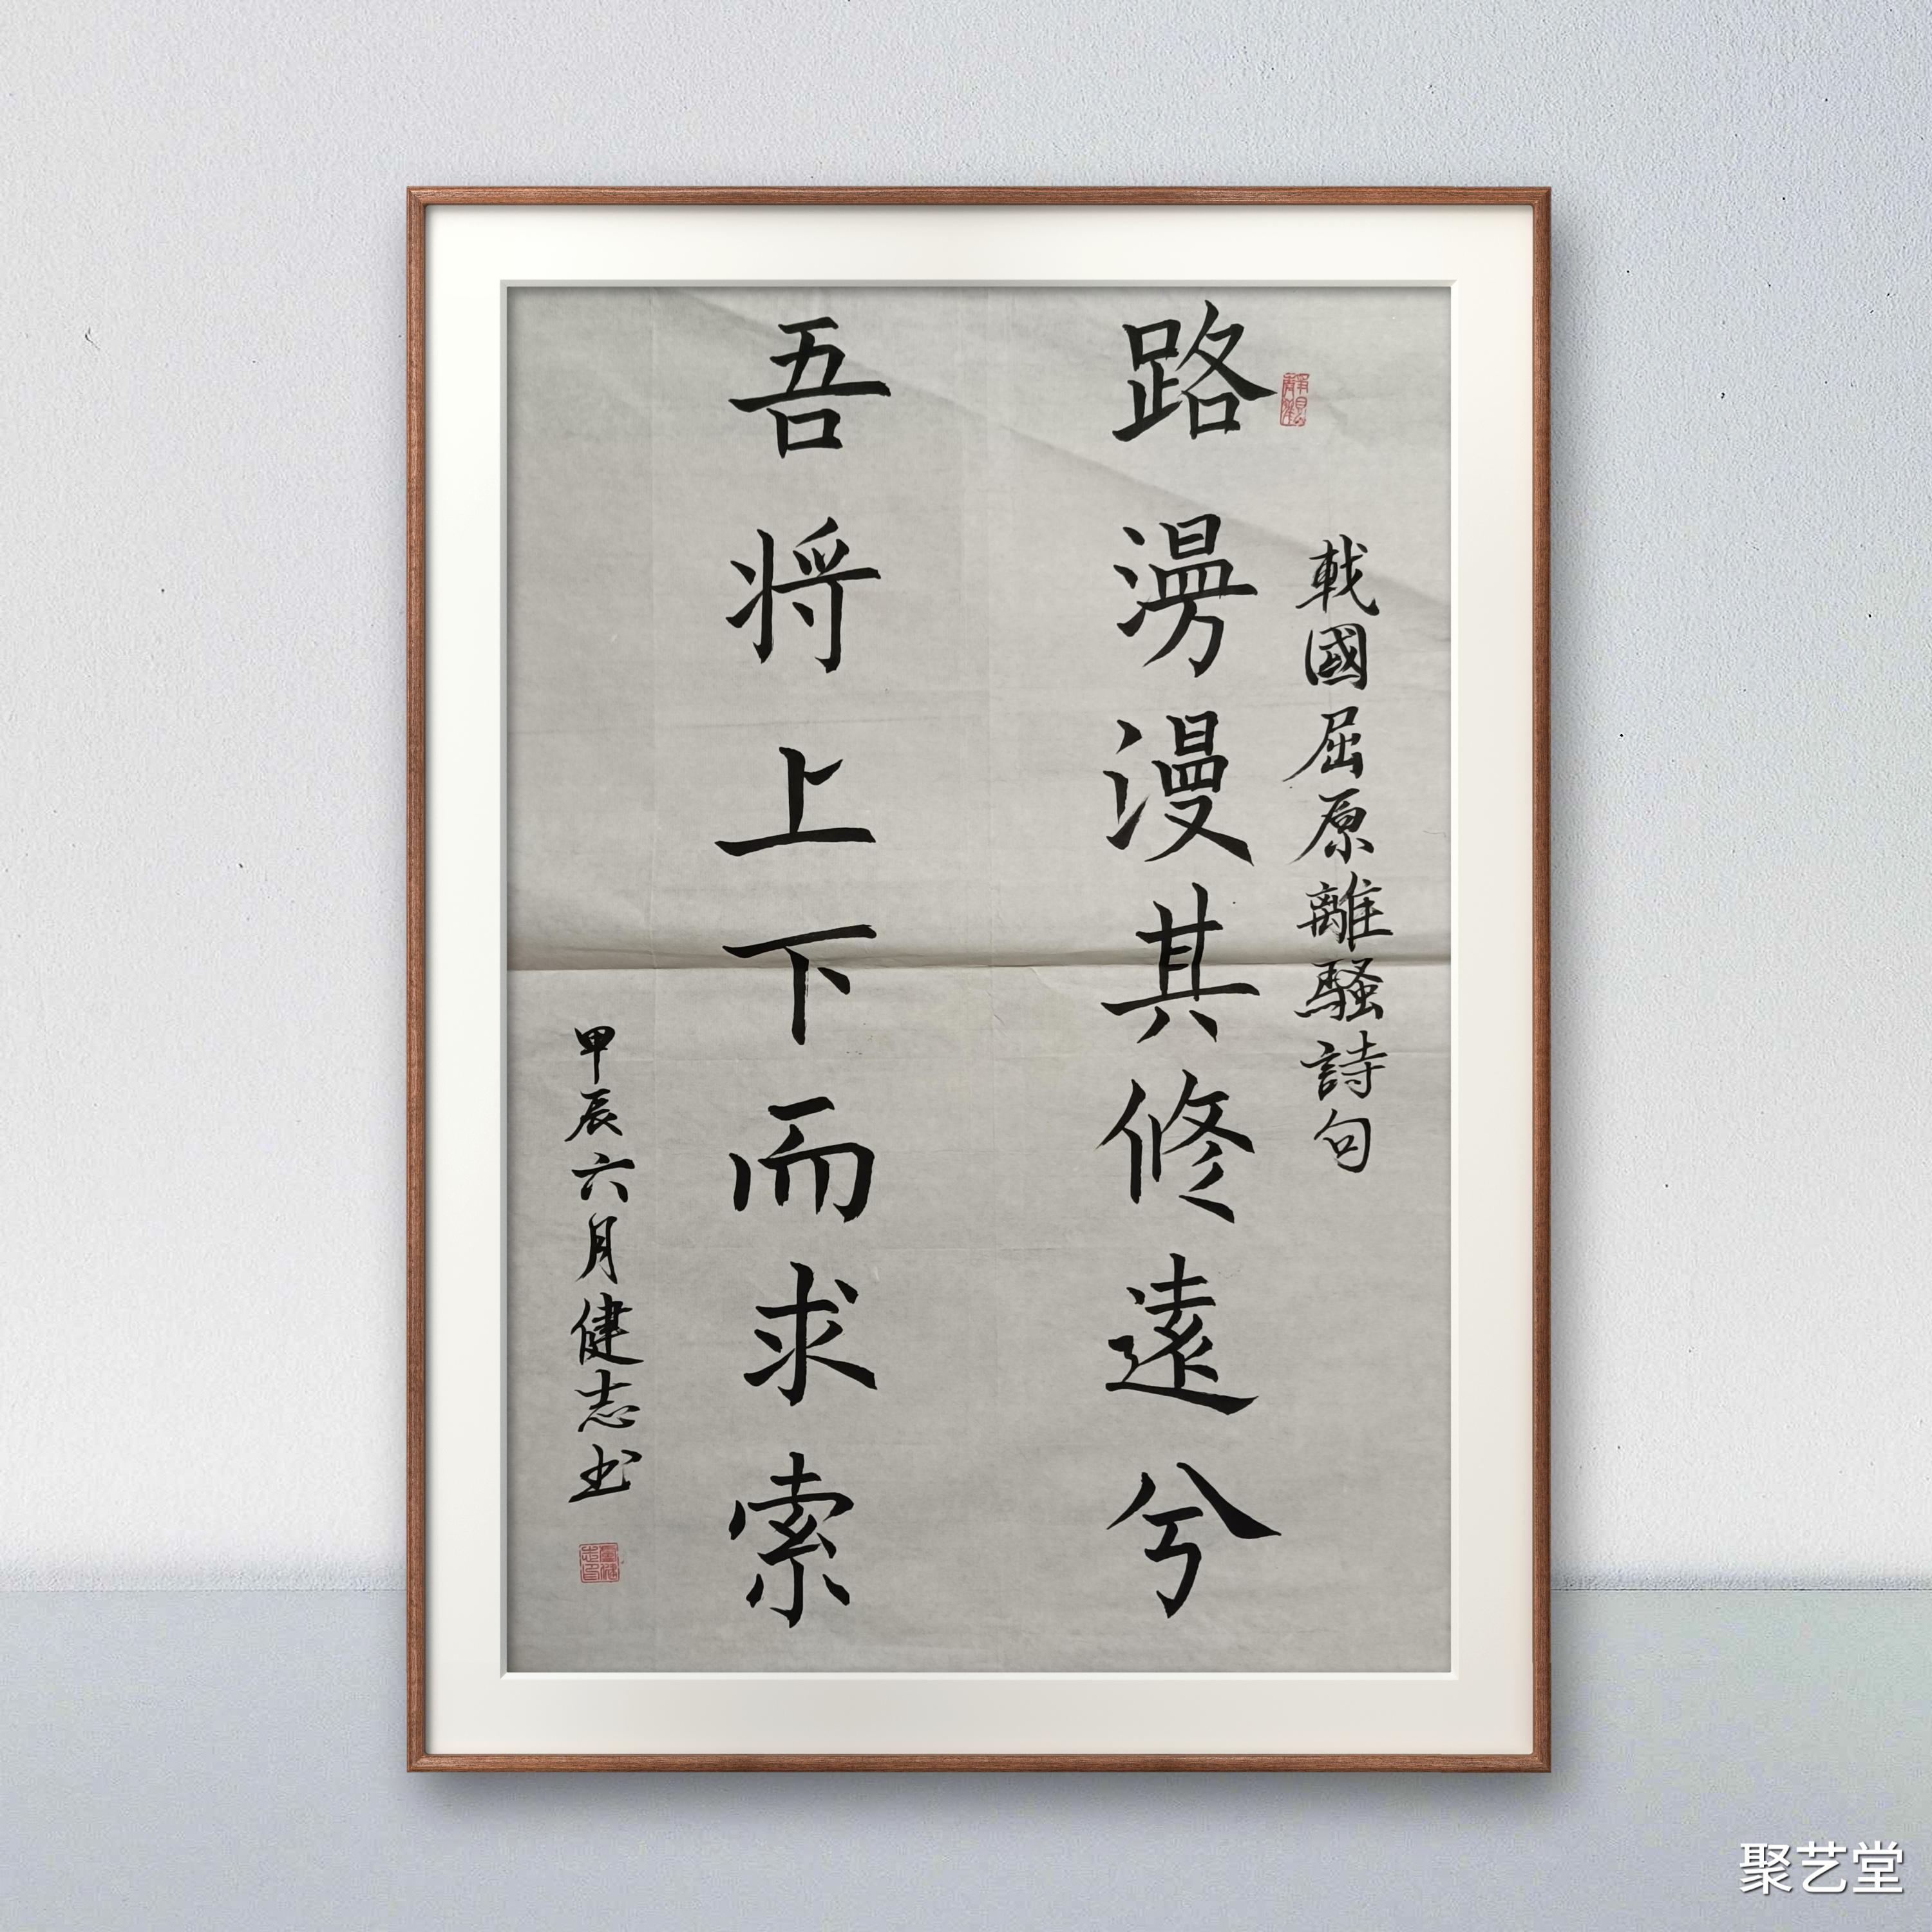 戰國屈原離騷詩句
路漫漫其修遠兮
吾将上下而求索
甲辰六月健志书
聚艺堂